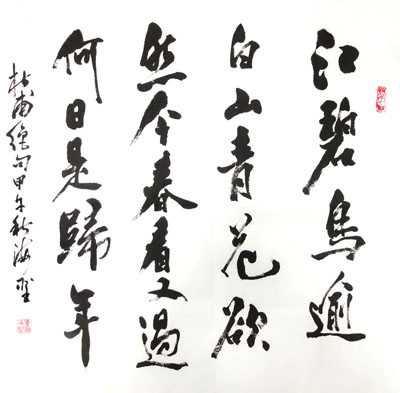 江碧鸟逾
白山青花欲
然今春看又過
何日是歸年
杜甫絕句甲午秋海聖